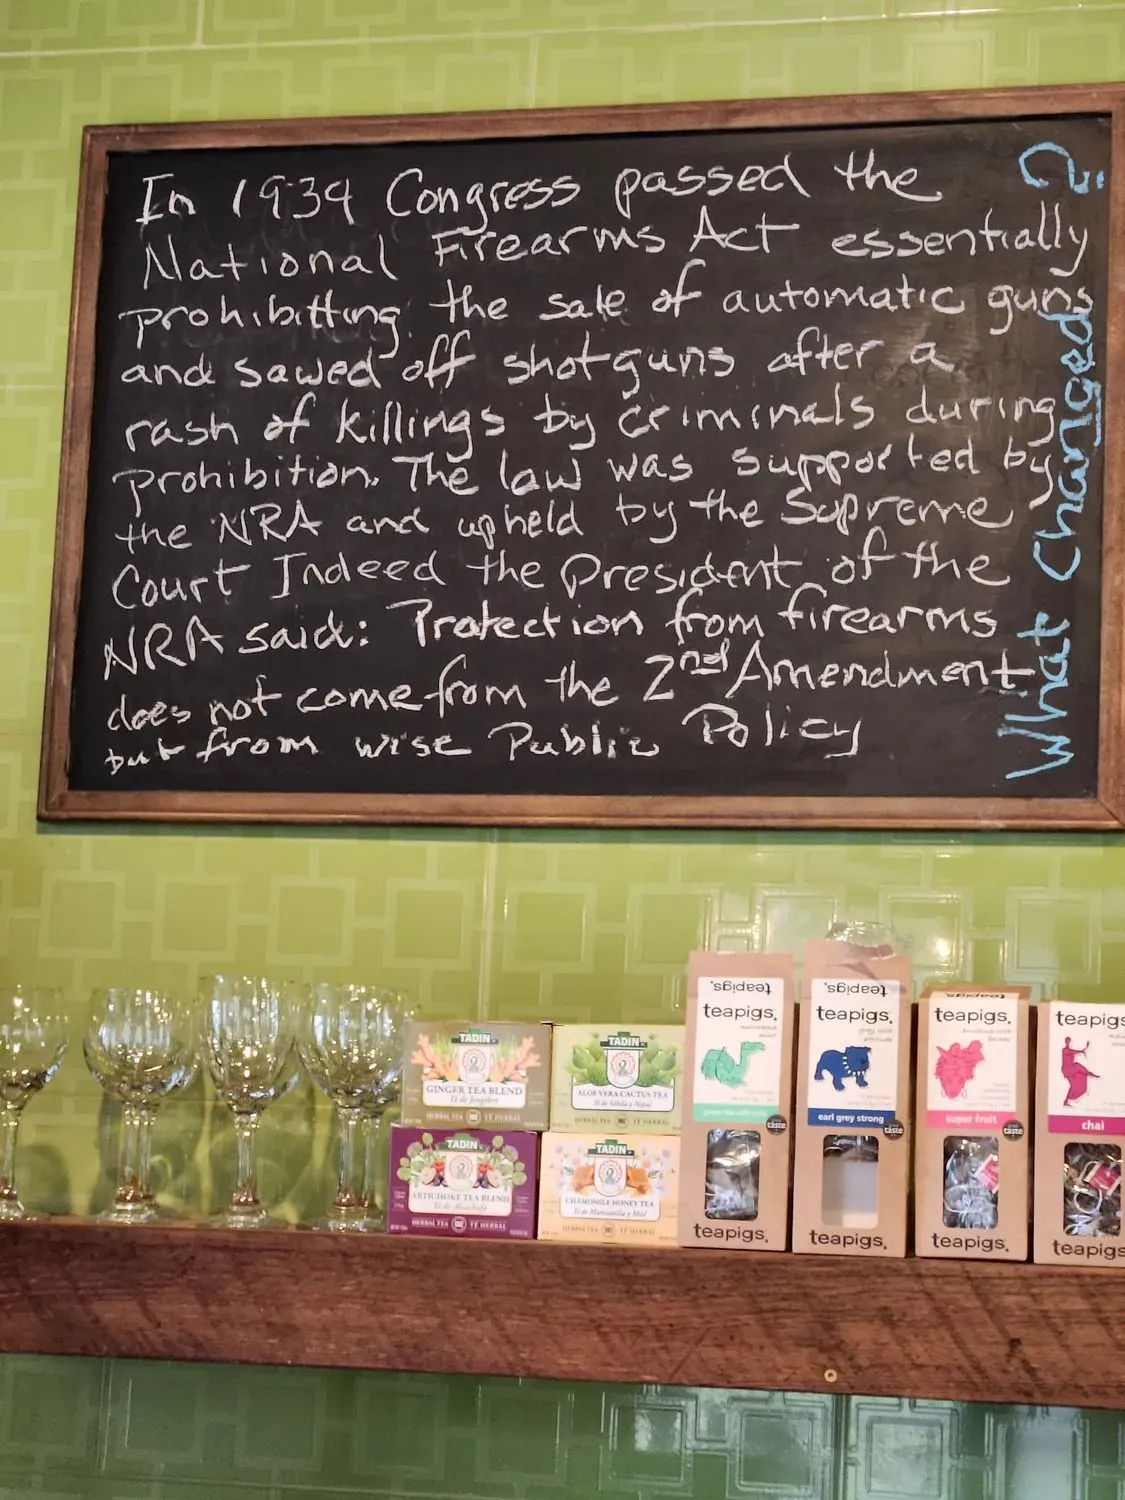 In 1934 Congress passed the
National Firearms Act essentially
prohibitting the sale of automatic guns
and sawed off shotguns after a
rash of killings by criminals during
prohibition. The law was supported by
the NRA and upheld by the Supreme
Court Indeed the President of the
NRA said: Protection from firearms
does not come from the 2nd Amendment
but from wise Public Policy
What Changed?
TADIN
GINGER TEA BLEND
Té de Jengibre
HERBAL TEA TÉ HERBAL
TADIN
ALOE VERA CACTUS TEA
Té de Sábila y Nopal
HERBAL TEA TÉ HERBAL
TADIN
ARTICHOKE TEA BLEND
Té de Alcachofa
HERBAL TEA TÉ HERBAL
TADIN
CHAMOMILE HONEY TEA
Té de Manzanilla y Miel
HERBAL TEA TÉ HERBAL
teapigs.
teapigs.
green tea with mint
taste
teapigs.
teapigs.
teapigs.
earl grey strong
taste
teapigs.
teapigs.
teapigs.
super fruit
taste
teapigs.
teapigs
chai
teapigs